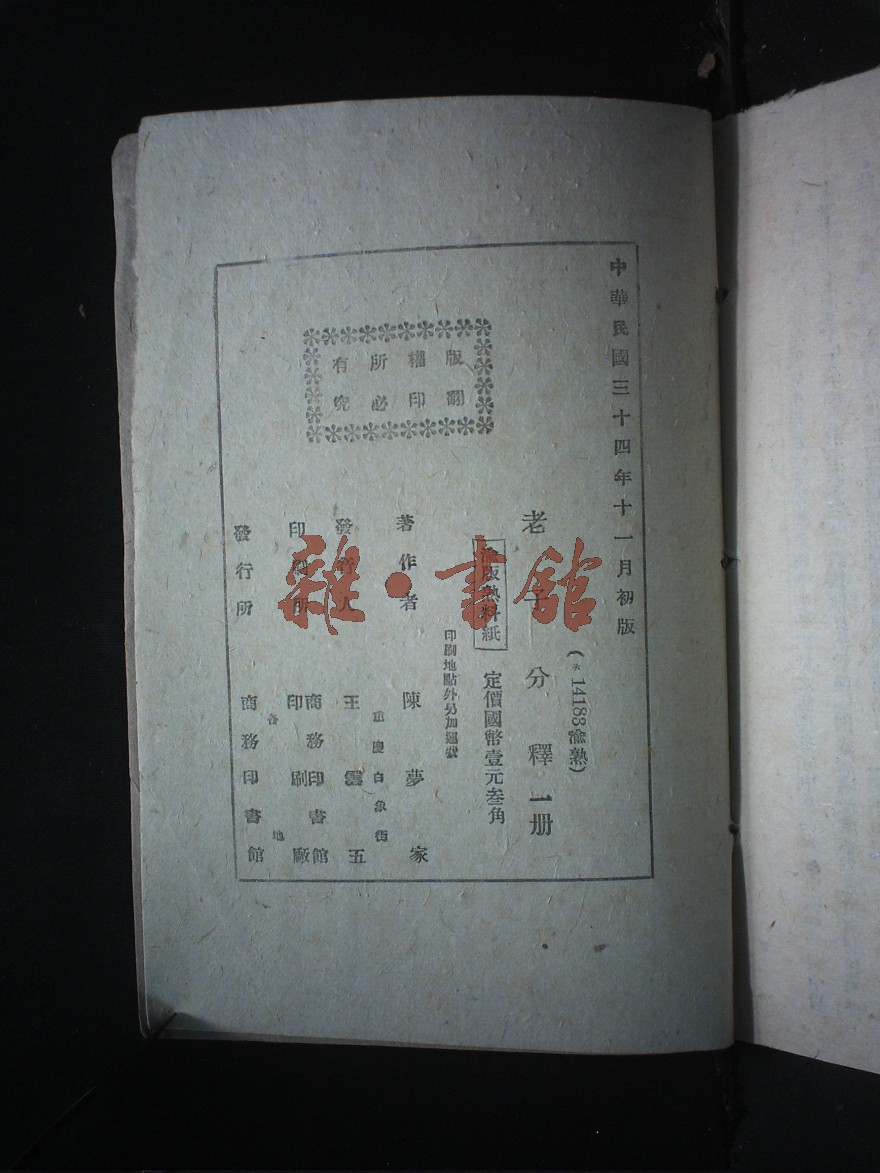 中華民國三十四年十一月初版
(*14183渝熟)
老子分釋一册
渝版熟料紙
定價國幣壹元叁角
印刷地點外另加運費
著作者 陳夢家
重慶白象街
發行人 王雲五
印刷所 商務印書館印刷廠
各地
發行所 商務印書館
版權所有
翻印必究
雜·書館